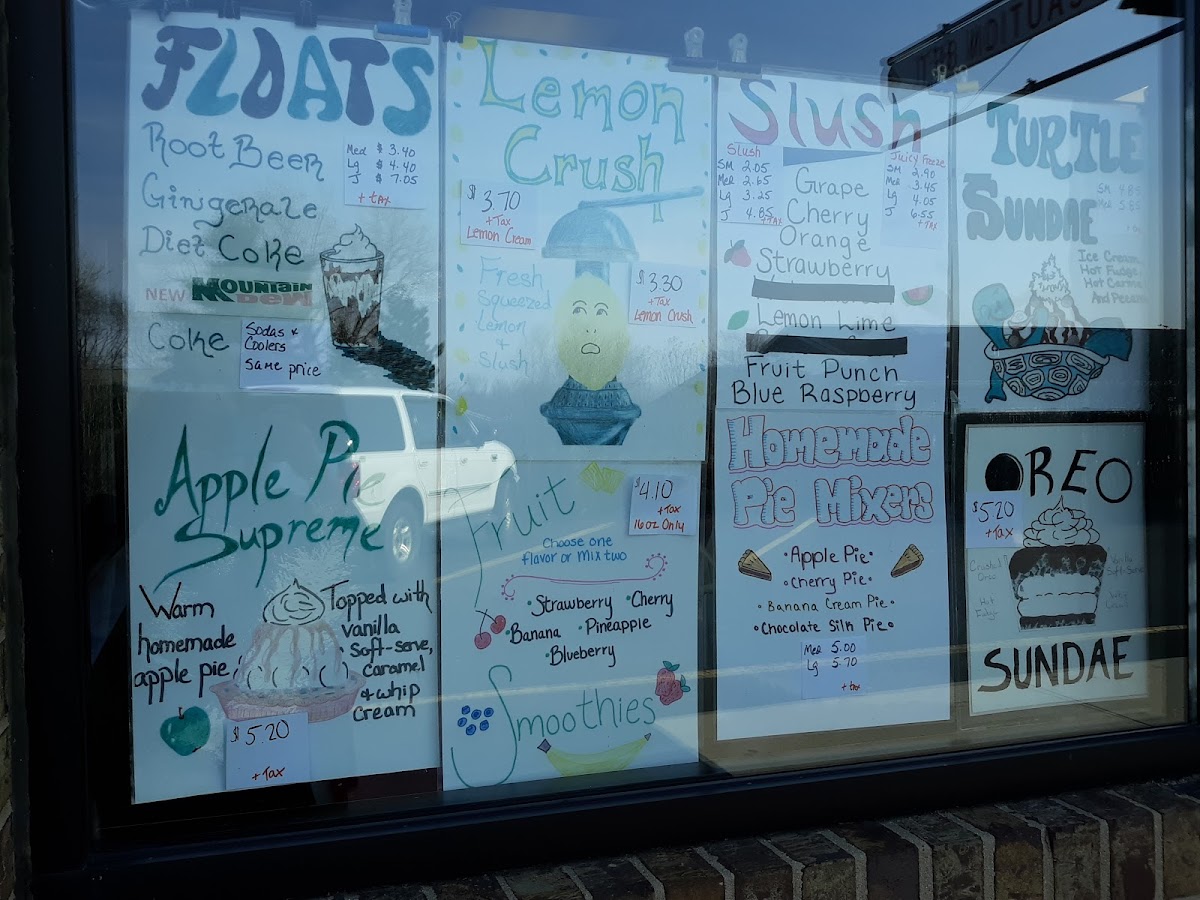 FLOATS
Root Beer
Gingerale
Diet Coke
NEW MOUNTAIN DEW
Coke
Med $ 3.40
Lg $ 4.40
J $ 7.05
+ tax
Sodas &
Coolers
same price
Apple Pie
Supreme
Warm
homemade
apple pie
Topped with
vanilla
Soft-serve,
Caramel
& whip
Cream
$5.20
+ Tax
Lemon
Crush
$3.70
+Tax
Lemon Cream
Fresh
Squeezed
Lemon
&
Slush
$3.30
+Tax
Lemon Crush
Fruit
$4.10
+Tax
16oz Only
Choose one
flavor or Mix two
•Strawberry •Cherry
•Banana •Pineapple
•Blueberry
Smoothies
Slush
Slush
SM 2.05
Med 2.65
Lg 3.25
J 4.85
+TAX
Juicy Freeze
SM 2.90
Med 3.45
Lg 4.05
J 6.55
+TAX
Grape
Cherry
Orange
Strawberry
Lemon Lime
Fruit Punch
Blue Raspberry
Homemade
Pie Mixers
•Apple Pie•
•Cherry Pie•
•Banana Cream Pie•
•Chocolate Silk Pie•
Med 5.00
Lg 5.70
+ tax
TURTLE
SUNDAE
SM 4.85
Med 5.85
Ice Cream,
Hot Fudge,
Hot
And
OREO
$5.20
+Tax
Crushed
Oreo
Hot
Fudge
Vanilla
Soft-Serve
SUNDAE
CAUTION